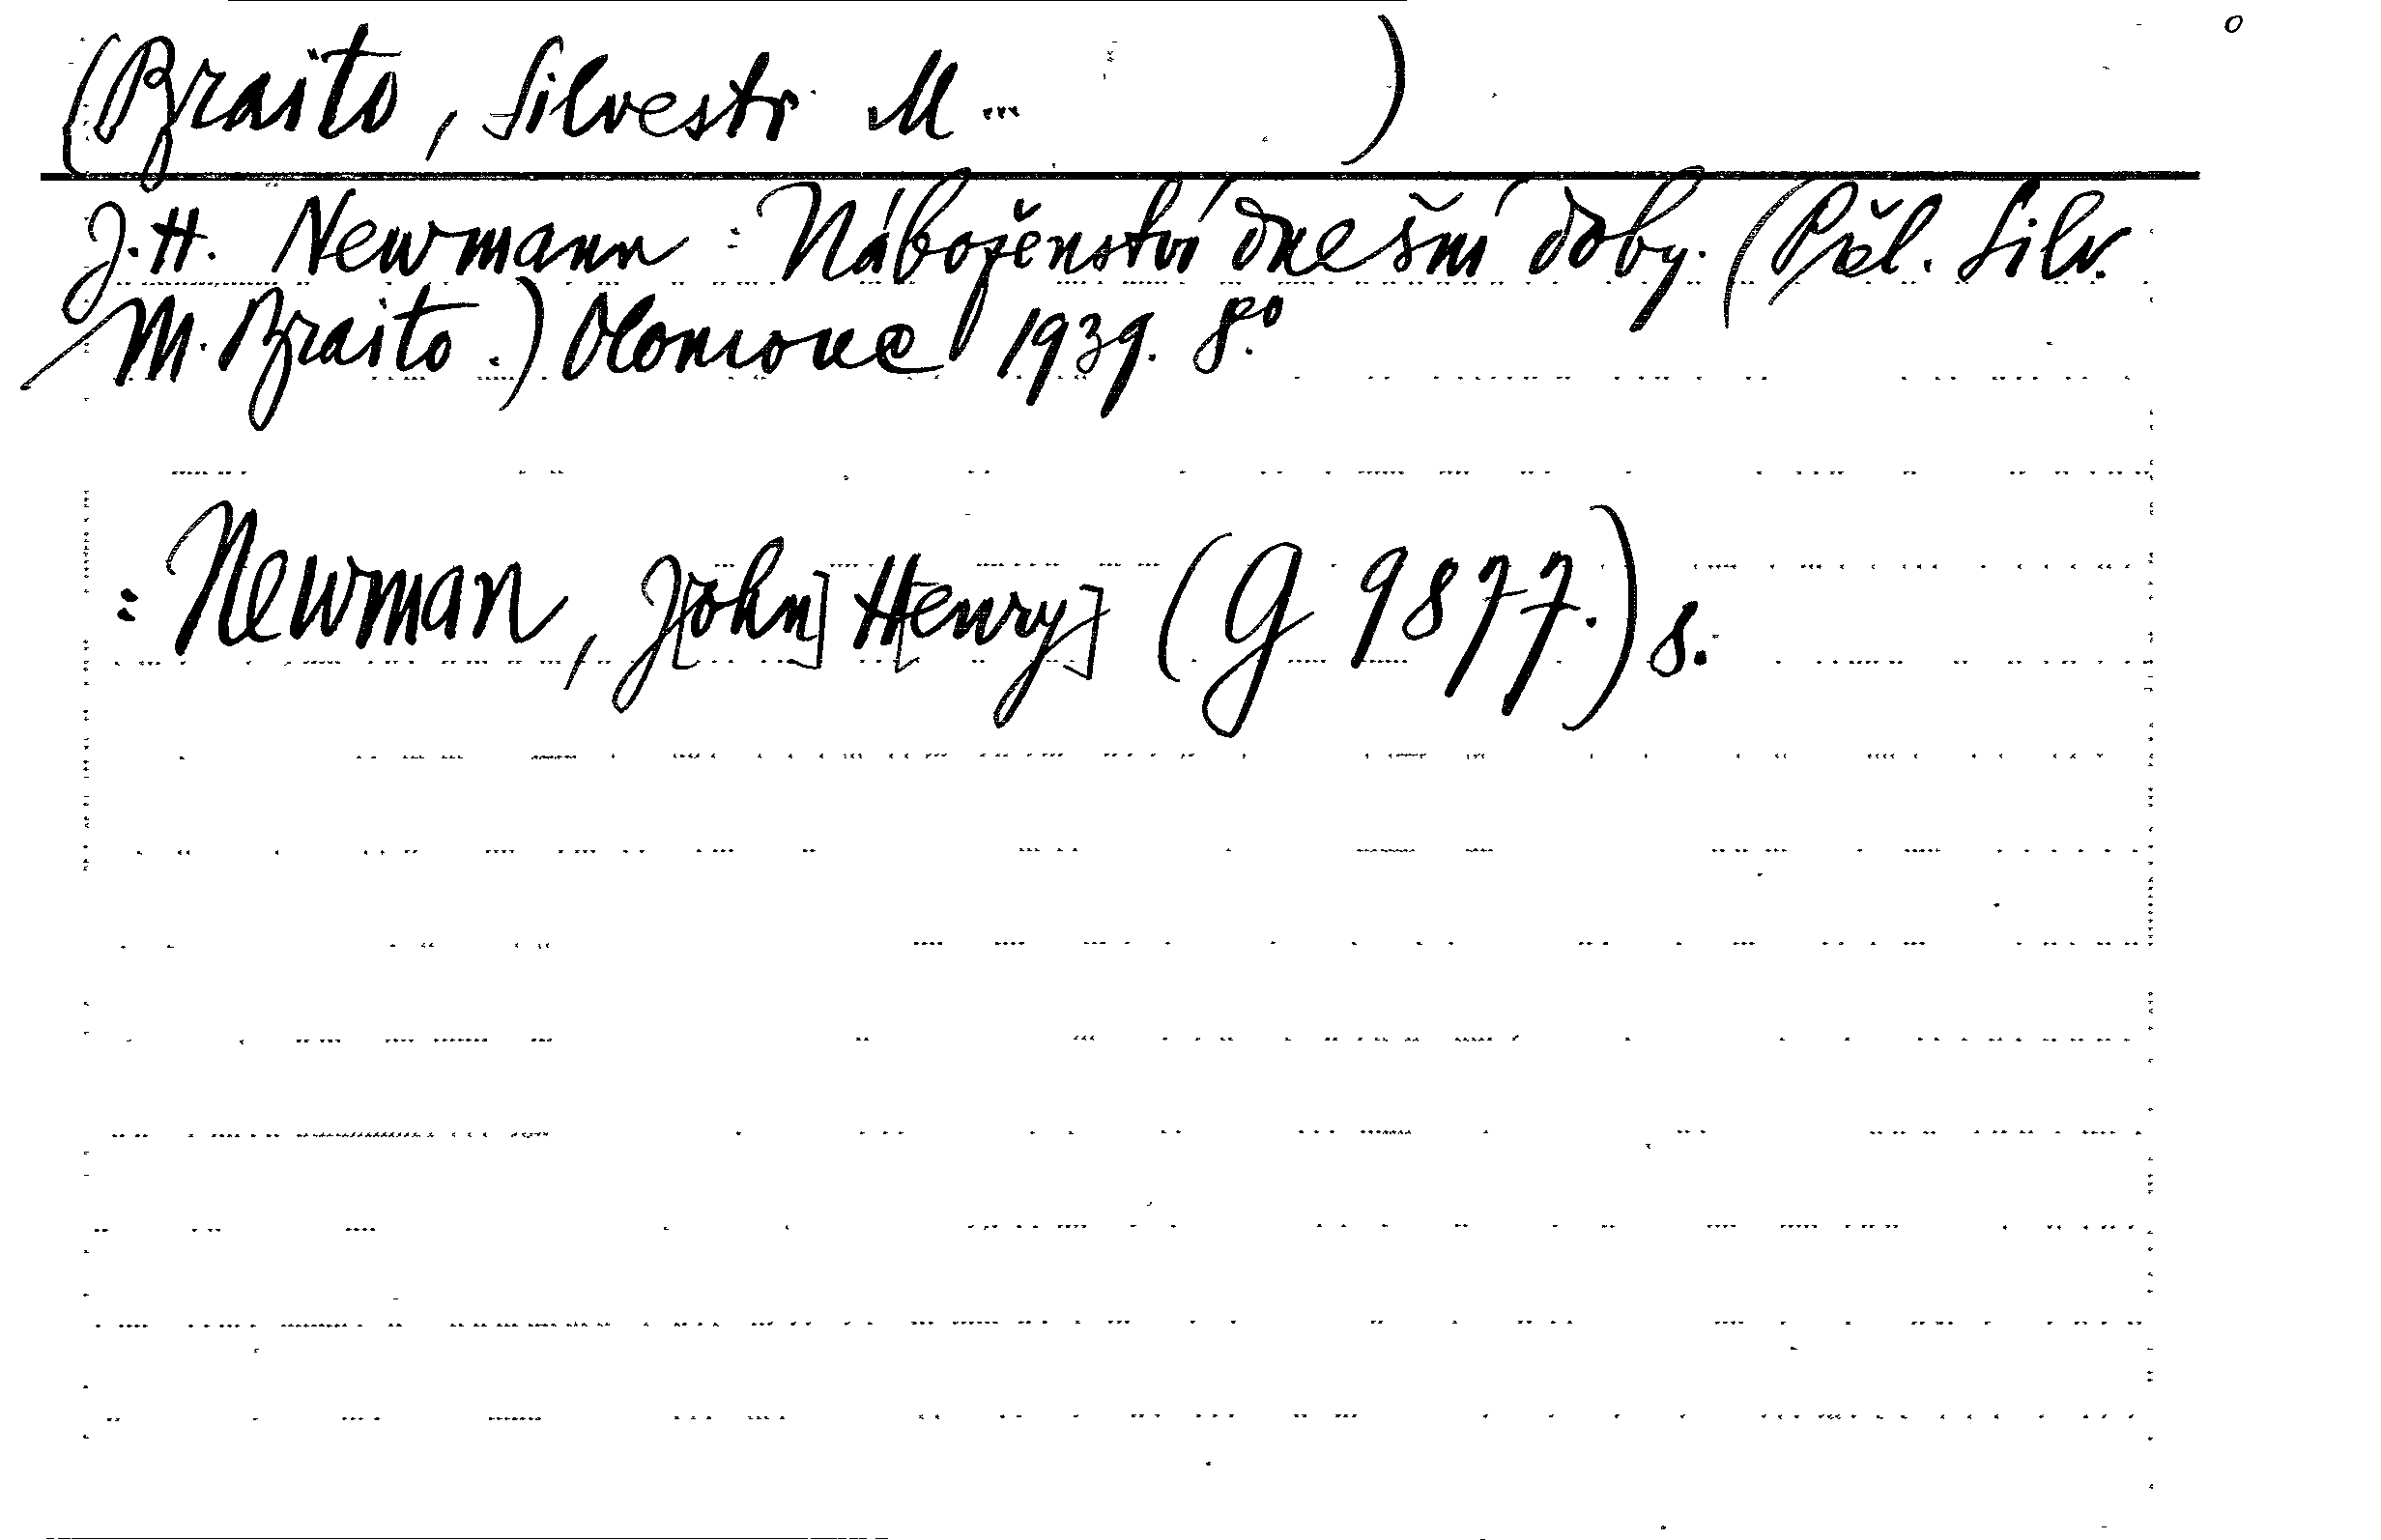 (Braito, Silvestr M ... )
J. H. Newmann : Náboženství dnešní doby. (Přel. Silv.
M. Braito.) Olomouc 1939. 8.º
: Newman, J[ohn] H[enry] (G 9877.) s.